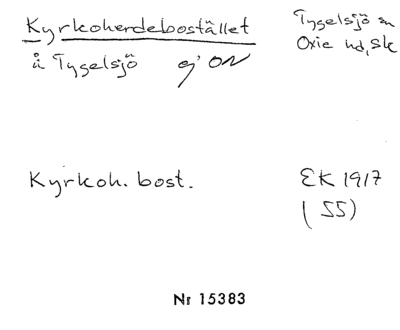 Kyrkoherdebostället
å Tygelsjö ej ON
Tygelsjö sn
Oxie hd, Sk
Kyrkoh. bost.
EK 1917
(SS)
Nr 15383